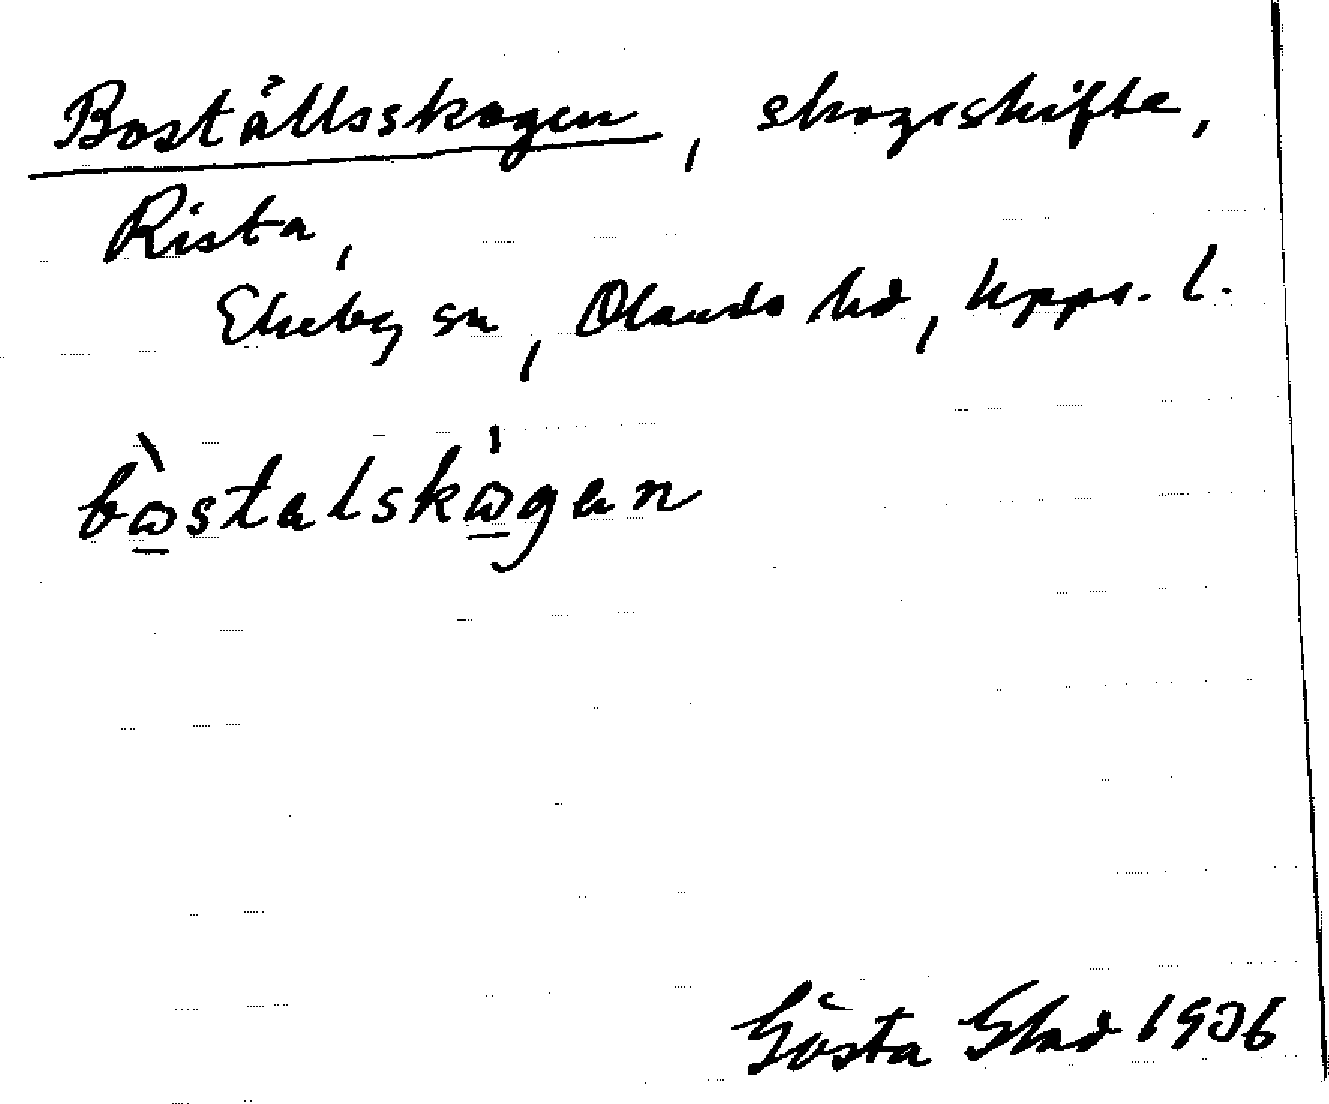 Boställsskogen, skogsskifte,
Rista,
Ekeby sn, Olands hd, Upps. l.
bὼstalskὼgen
Gösta Glad 1936